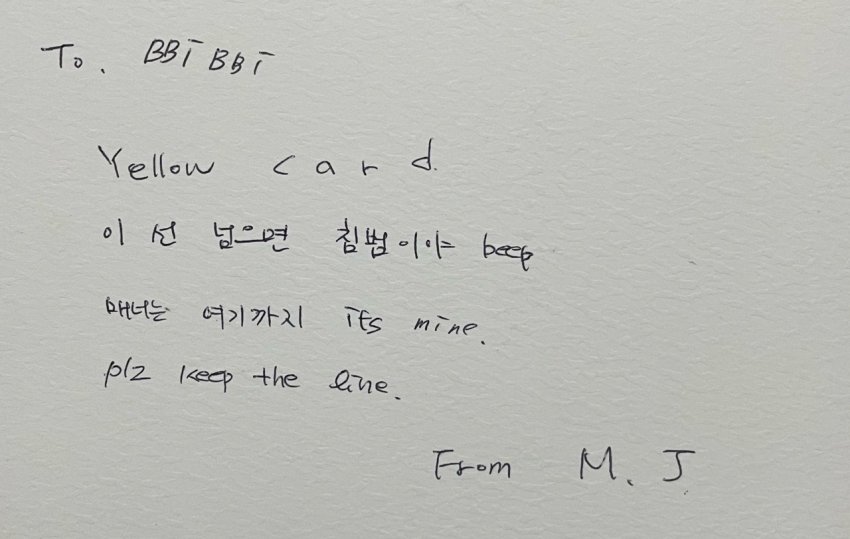 To. BBI BBI
Yellow card.
이 선 넘으면 침범이야 beep
매너는 여기까지 its mine.
plz keep the line.
From M. J